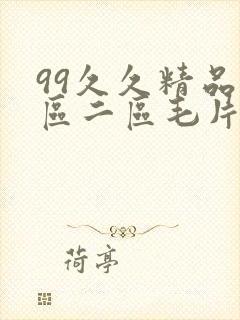 99久久精品
區二區毛片
荷亭